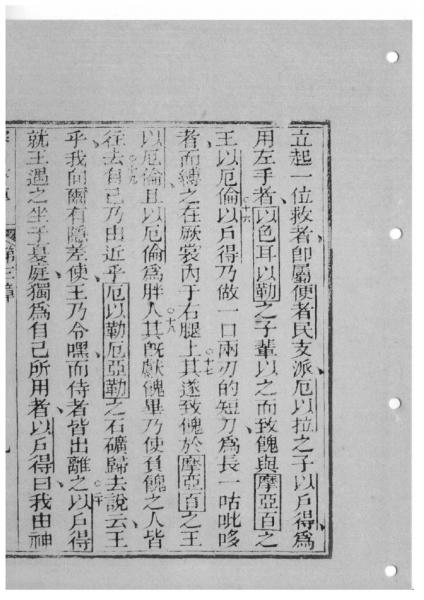 立起一位救者卽屬便者民支派厄以拉之子以戶得爲
用左手者以色耳以勒之子輩以之而致餽與摩亞百之
王以厄倫以戶得乃做一口兩刃的短刀爲長一咕吡哆
者而縛之在厥裳內于右腿上其遂致餽於摩亞百之王
以厄倫且以厄倫爲胖人其旣獻餽畢乃使負餽之人皆
往去有己乃出近乎厄以勒厄亞勒之石礦歸去說云王
乎我向爾有隱差使王乃令嘿而侍者皆出離之以戶得
就王遇之坐于夏庭獨爲自己所用者以戶得曰我由神
第三章